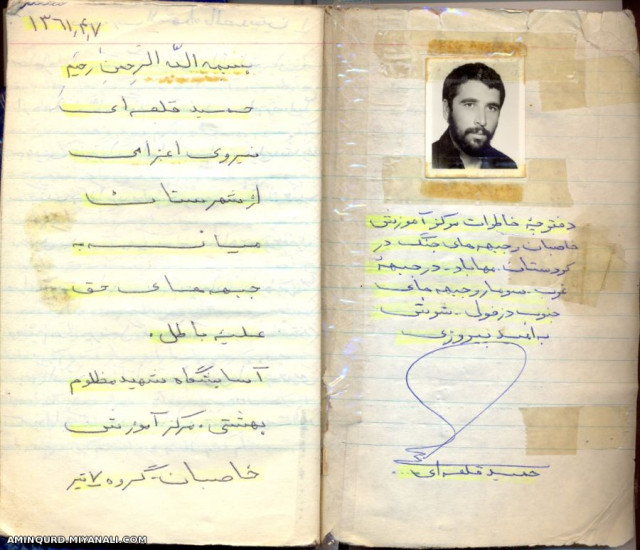 ۱۳۶۱٫۴٫۷
بسمه الله الرحمن الرحیم
حمید قلعه ای
نیروی اعزامی
از شهرستان
میانه به
جبهه های حق
علیه باطل.
آسایشگاه شهید مظلوم
بهشتی. مرکز آموزش
خاصبان-گروه ۷ تیر
دفترچهٔ خاطرات مرکز آموزش
خاصبان و جبهه های جنگ در
کردستان. مهاباد. در جبههٔ
غرب. سومار و جبهه های
جنوب دزفول. شوش
به امید پیروزی
حمید قلعه ای
AMINQURD.MIYANALI.COM